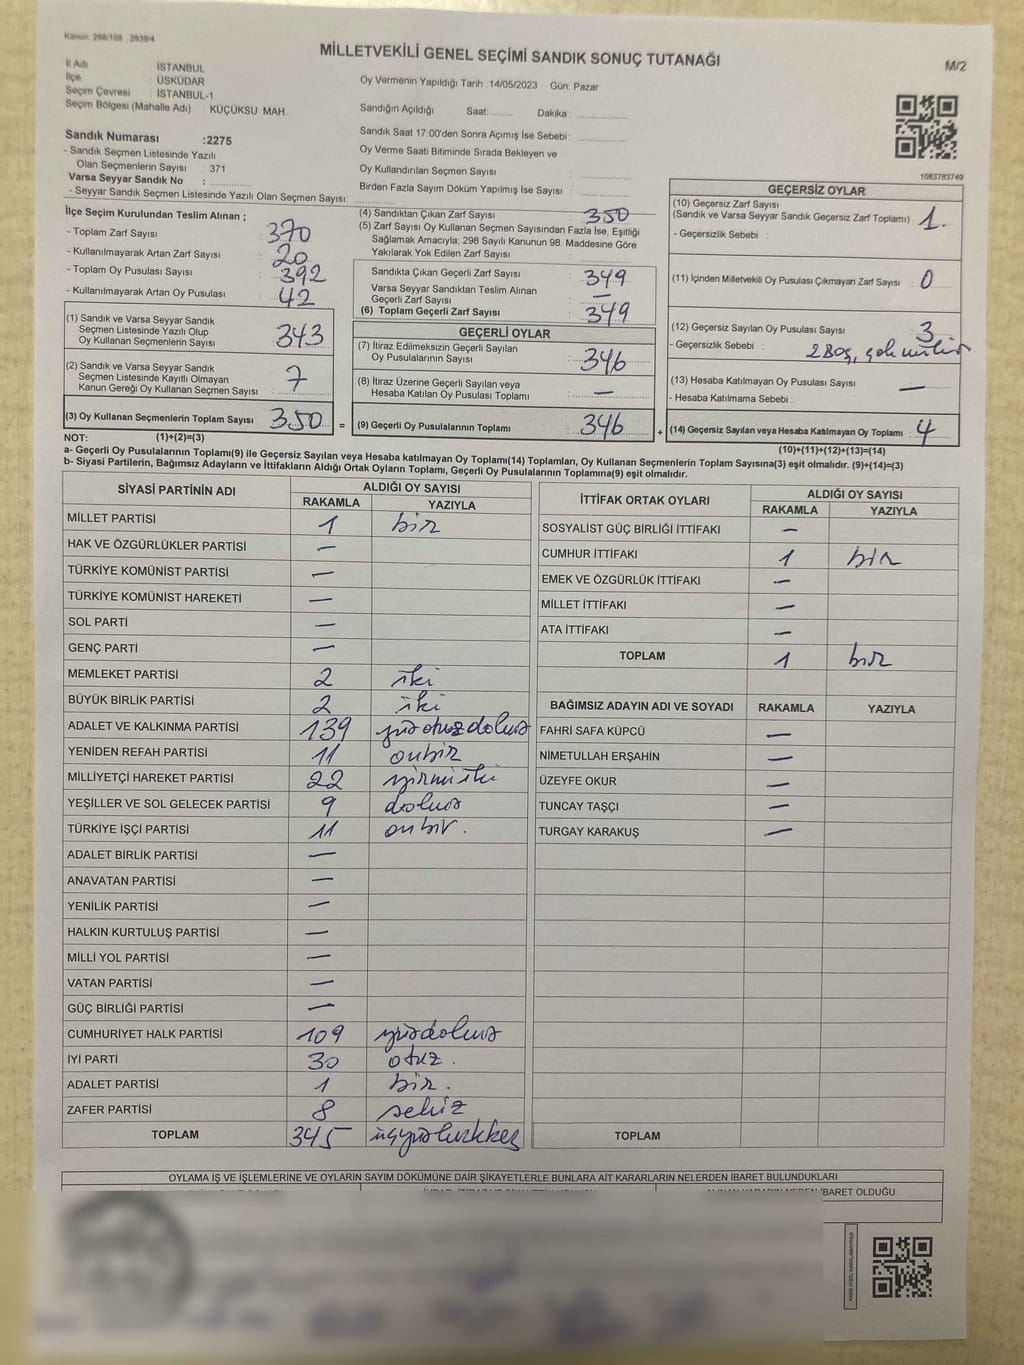 Kanun: 298/105 , 2839/4
MİLLETVEKİLİ GENEL SEÇİMİ SANDIK SONUÇ TUTANAĞI
M/2
İl Adı İSTANBUL
İlçe ÜSKÜDAR
Seçim Çevresi : İSTANBUL-1
Seçim Bölgesi (Mahalle Adı) : KÜÇÜKSU MAH.
Sandık Numarası :2275
- Sandık Seçmen Listesinde Yazılı
Olan Seçmenlerin Sayısı : 371
Varsa Seyyar Sandık No :
- Seyyar Sandık Seçmen Listesinde Yazılı Olan Seçmen Sayısı:
Oy Vermenin Yapıldığı Tarih : 14/05/2023 Gün: Pazar
Sandığın Açıldığı Saat: Dakika :
Sandık Saat 17:00'den Sonra Açımış İse Sebebi :
Oy Verme Saati Bitiminde Sırada Bekleyen ve
Oy Kullandırılan Seçmen Sayısı :
Birden Fazla Sayım Döküm Yapılmış İse Sayısı :
1083783749
İlçe Seçim Kurulundan Teslim Alınan ;
- Toplam Zarf Sayısı : 370
- Kullanılmayarak Artan Zarf Sayısı : 20
- Toplam Oy Pusulası Sayısı : 392
- Kullanılmayarak Artan Oy Pusulası : 42
(1) Sandık ve Varsa Seyyar Sandık
Seçmen Listesinde Yazılı Olup
Oy Kullanan Seçmenlerin Sayısı : 343
(2) Sandık ve Varsa Seyyar Sandık
Seçmen Listesinde Kayıtlı Olmayan
Kanun Gereği Oy Kullanan Seçmen Sayısı : 7
(3) Oy Kullanan Seçmenlerin Toplam Sayısı : 350 =
(4) Sandıktan Çıkan Zarf Sayısı : 350
(5) Zarf Sayısı Oy Kullanan Seçmen Sayısından Fazla İse, Eşitliği
Sağlamak Amacıyla; 298 Sayılı Kanunun 98. Maddesine Göre
Yakılarak Yok Edilen Zarf Sayısı :
Sandıkta Çıkan Geçerli Zarf Sayısı : 349
Varsa Seyyar Sandıktan Teslim Alınan
Geçerli Zarf Sayısı : —
(6) Toplam Geçerli Zarf Sayısı : 349
GEÇERLİ OYLAR
(7) İtiraz Edilmeksizin Geçerli Sayılan
Oy Pusulalarının Sayısı : 346
(8) İtiraz Üzerine Geçerli Sayılan veya
Hesaba Katılan Oy Pusulası Toplamı : —
(9) Geçerli Oy Pusulalarının Toplamı : 346 +
GEÇERSİZ OYLAR
(10) Geçersiz Zarf Sayısı
(Sandık ve Varsa Seyyar Sandık Geçersiz Zarf Toplamı) : 1.
- Geçersizlik Sebebi :
(11) İçinden Milletvekili Oy Pusulası Çıkmayan Zarf Sayısı : 0
(12) Geçersiz Sayılan Oy Pusulası Sayısı : 3
- Geçersizlik Sebebi : 2 Boş,
(13) Hesaba Katılmayan Oy Pusulası Sayısı : —
- Hesaba Katılmama Sebebi :
(14) Geçersiz Sayılan veya Hesaba Katılmayan Oy Toplamı : 4
NOT: (1)+(2)=(3) (10)+(11)+(12)+(13)=(14)
a- Geçerli Oy Pusulalarının Toplamı(9) ile Geçersiz Sayılan veya Hesaba Katılmayan Oy Toplamı(14) Toplamları, Oy Kullanan Seçmenlerin Toplam Sayısına(3) eşit olmalıdır. (9)+(14)=(3)
b- Siyasi Partilerin, Bağımsız Adayların ve İttifakların Aldığı Ortak Oyların Toplamı, Geçerli Oy Pusulalarının Toplamına(9) eşit olmalıdır.
SİYASİ PARTİNİN ADI ALDIĞI OY SAYISI
RAKAMLA YAZIYLA
MİLLET PARTİSİ 1 bir
HAK VE ÖZGÜRLÜKLER PARTİSİ —
TÜRKİYE KOMÜNİST PARTİSİ —
TÜRKİYE KOMÜNİST HAREKETİ —
SOL PARTİ —
GENÇ PARTİ —
MEMLEKET PARTİSİ 2 iki
BÜYÜK BİRLİK PARTİSİ 2 iki
ADALET VE KALKINMA PARTİSİ 139 yüzotuzdokuz
YENİDEN REFAH PARTİSİ 11 onbir
MİLLİYETÇİ HAREKET PARTİSİ 22 yirmiiki
YEŞİLLER VE SOL GELECEK PARTİSİ 9 dokuz
TÜRKİYE İŞÇİ PARTİSİ 11 onbir.
ADALET BİRLİK PARTİSİ —
ANAVATAN PARTİSİ —
YENİLİK PARTİSİ —
HALKIN KURTULUŞ PARTİSİ —
MİLLİ YOL PARTİSİ —
VATAN PARTİSİ —
GÜÇ BİRLİĞİ PARTİSİ —
CUMHURİYET HALK PARTİSİ 109 yüzdokuz
İYİ PARTİ 30 otuz.
ADALET PARTİSİ 1 bir.
ZAFER PARTİSİ 8 sekiz
TOPLAM 345
İTTİFAK ORTAK OYLARI ALDIĞI OY SAYISI
RAKAMLA YAZIYLA
SOSYALİST GÜÇ BİRLİĞİ İTTİFAKI —
CUMHUR İTTİFAKI 1 bir
EMEK VE ÖZGÜRLÜK İTTİFAKI —
MİLLET İTTİFAKI —
ATA İTTİFAKI —
TOPLAM 1 bir
BAĞIMSIZ ADAYIN ADI VE SOYADI RAKAMLA YAZIYLA
FAHRİ SAFA KÜPCÜ —
NİMETULLAH ERŞAHİN —
ÜZEYFE OKUR —
TUNCAY TAŞÇI —
TURGAY KARAKUŞ —
TOPLAM
OYLAMA İŞ VE İŞLEMLERİNE VE OYLARIN SAYIM DÖKÜMÜNE DAİR ŞİKAYETLERLE BUNLARA AİT KARARLARIN NELERDEN İBARET BULUNDUKLARI
İBARET OLDUĞU